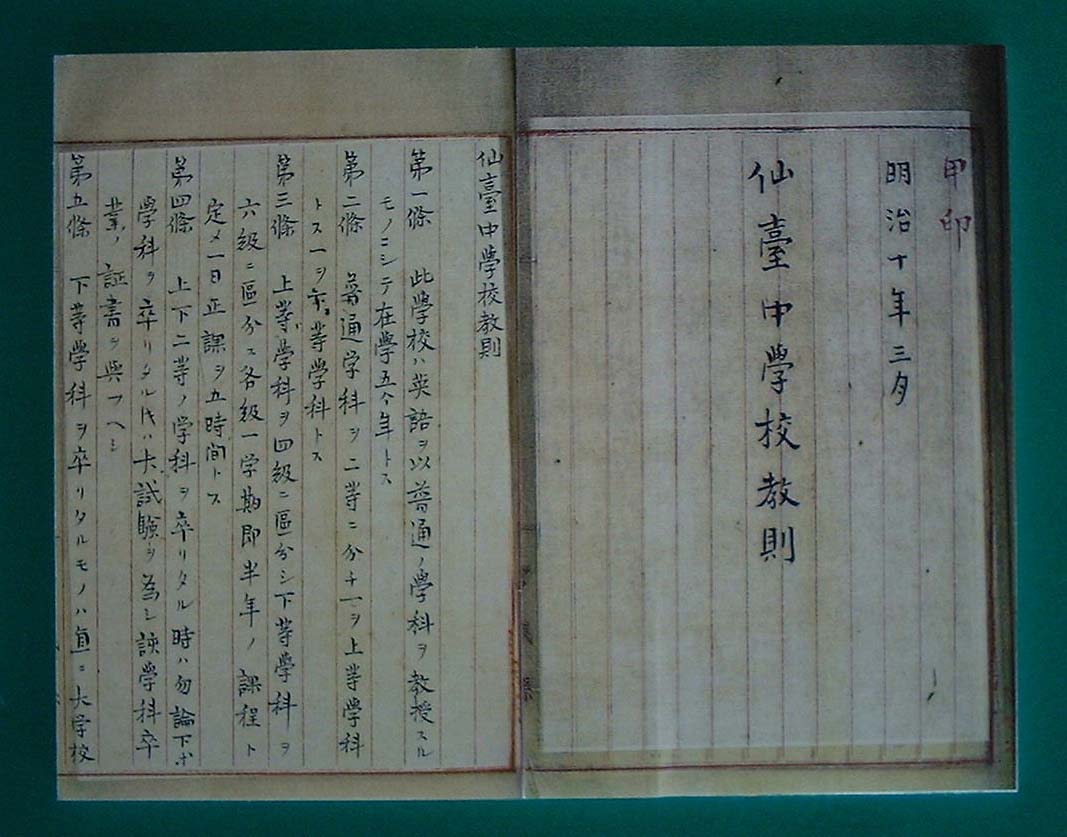 甲印
明治十年三月
仙臺中學校教則
仙臺中學校教則
第一條 此學校ハ英語ヲ以普通ノ學科ヲ教授スル
モノニシテ在學五ケ年トス
第二條 普通学科ヲ二等ニ分チ一ヲ上等学科
トス一ヲ下等学科トス
第三條 上等学科ヲ四級ニ區分シ下等学科ヲ
六級ニ區分ス各級一学期即半年ノ課程ト
定メ一日正課ヲ五時間トス
第四條 上下二等ノ学科ヲ卒リタル時ハ勿論下等
學科ヲ卒リタル氏ハ大試驗ヲ為シ該学科卒
業ノ証書ヲ與フヘシ
第五條 下等学科ヲ卒リタルモノハ直ニ大学校